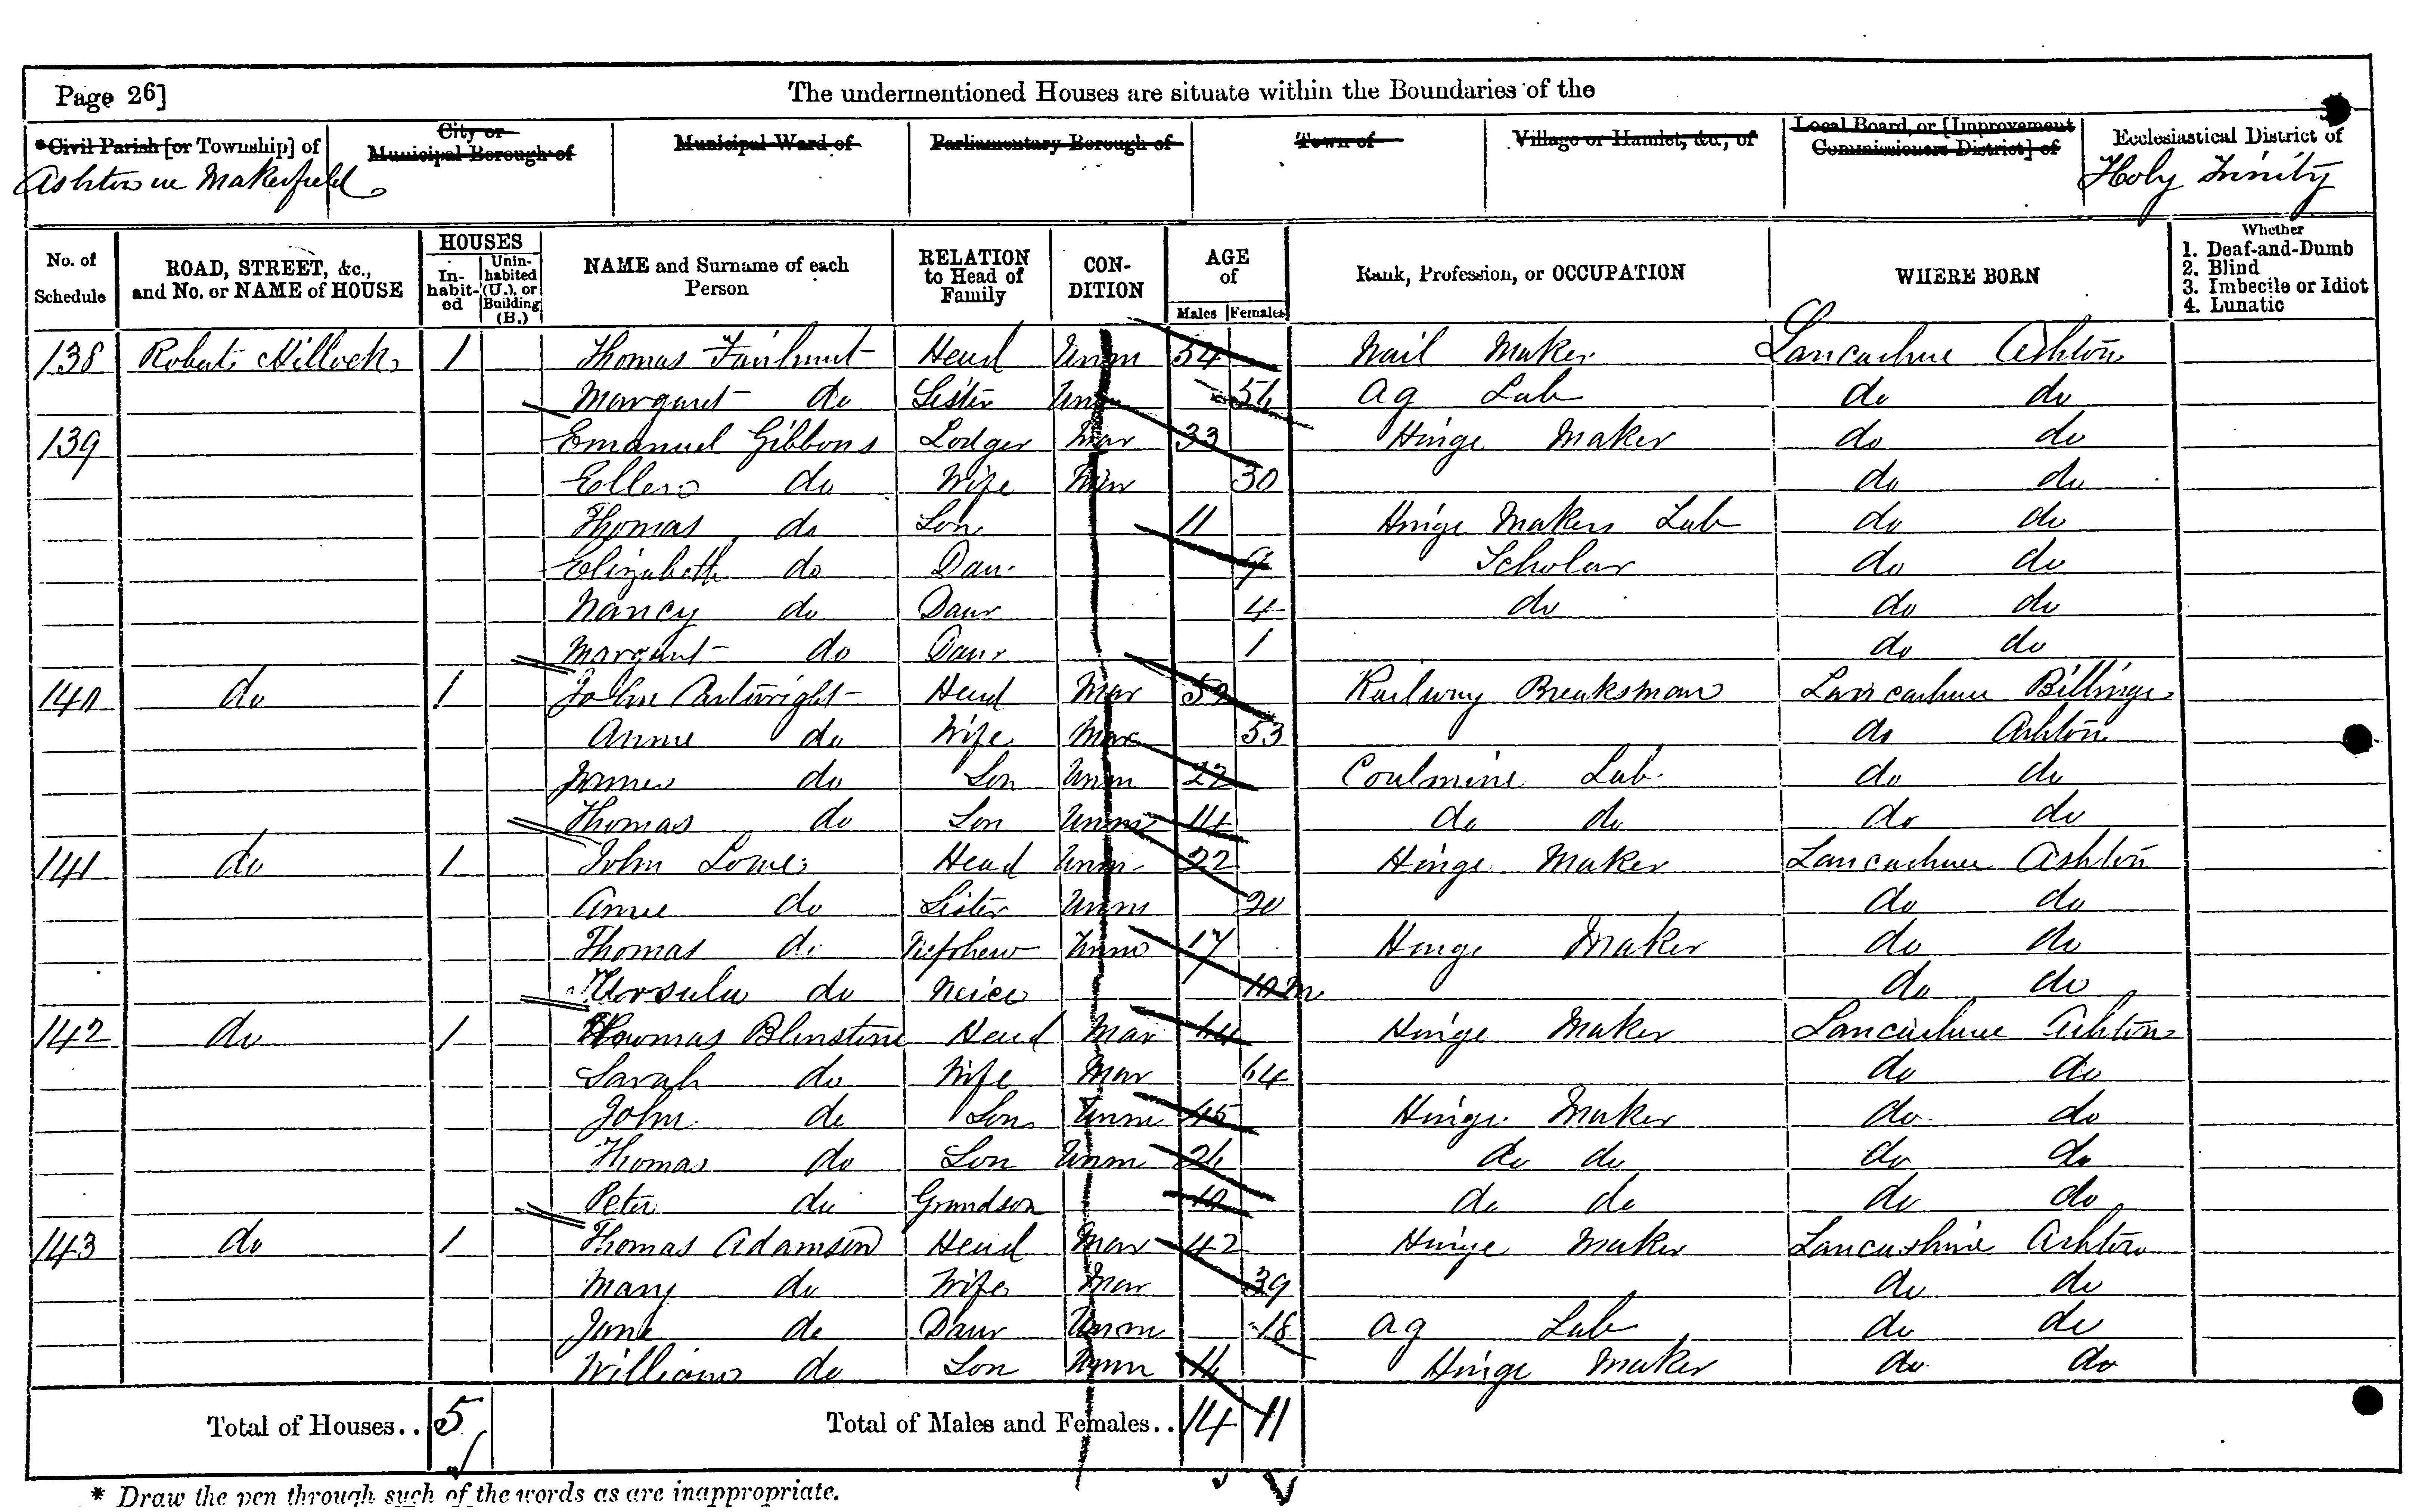 Page 26] The undermentioned Houses are situate within the Boundaries of the
*Civil Parish [or Township] of City or Municipal Borough of Municipal Ward of Parliamentary Borough of Town of Village or Hamlet, &c., of Local Board, or [Improvement Commissioners District] of Ecclesiastical District of
Ashton in Makerfield Holy Trinity
No. of Schedule ROAD, STREET, &c., and No. or NAME of HOUSE HOUSES In-habit-ed Unin-habited (U.), or Building (B.) NAME and Surname of each Person RELATION to Head of Family CON-DITION AGE of Males Females Rank, Profession, or OCCUPATION WHERE BORN Whether 1. Deaf-and-Dumb 2. Blind 3. Imbecile or Idiot 4. Lunatic
138 Roberts Hillock 1 Thomas Fairhurst Head Unm 54 Nail Maker Lancashire Ashton
Margaret do Sister Unm Ag Lab do do
139 Emanuel Gibbons Lodger Mar 33 Hinge Maker do do
Ellen do Wife Mar 30 do do
Thomas do Son 11 Hinge Makers Lab do do
Elizabeth do Dau 9 Scholar do do
Nancy do Daur 4 do do do
Margaret do Daur 1 do do
140 do 1 John Cartwright Head Mar Railway Breaksman Lancashire Billinge
Annie do Wife Mar 53 do Ashton
James do Son Unm 22 Coalmine Lab do do
Thomas do Son Unm 14 do do do do
141 do 1 John Lowe Head Unm 22 Hinge Maker Lancashire Ashton
Anne do Sister Unm 20 do do
Thomas do Nephew Unm 17 Hinge Maker do do
Ursula do Neice 10m do do
142 do 1 Thomas Blinstone Head Mar Hinge Maker Lancashire Ashton
Sarah do Wife Mar 64 do do
John do Son Unm 45 Hinge Maker do do
Thomas do Son Unm 26 do do do do
Peter do Grandson do do do do
143 do 1 Thomas Adamson Head Mar 42 Hinge Maker Lancashire Ashton
Mary do Wife Mar 39 do do
Jane do Daur Unm 18 Ag Lab do do
William do Son Unm Hinge Maker do do
Total of Houses.. 5 Total of Males and Females.. 14 11
* Draw the pen through such of the words as are inappropriate.